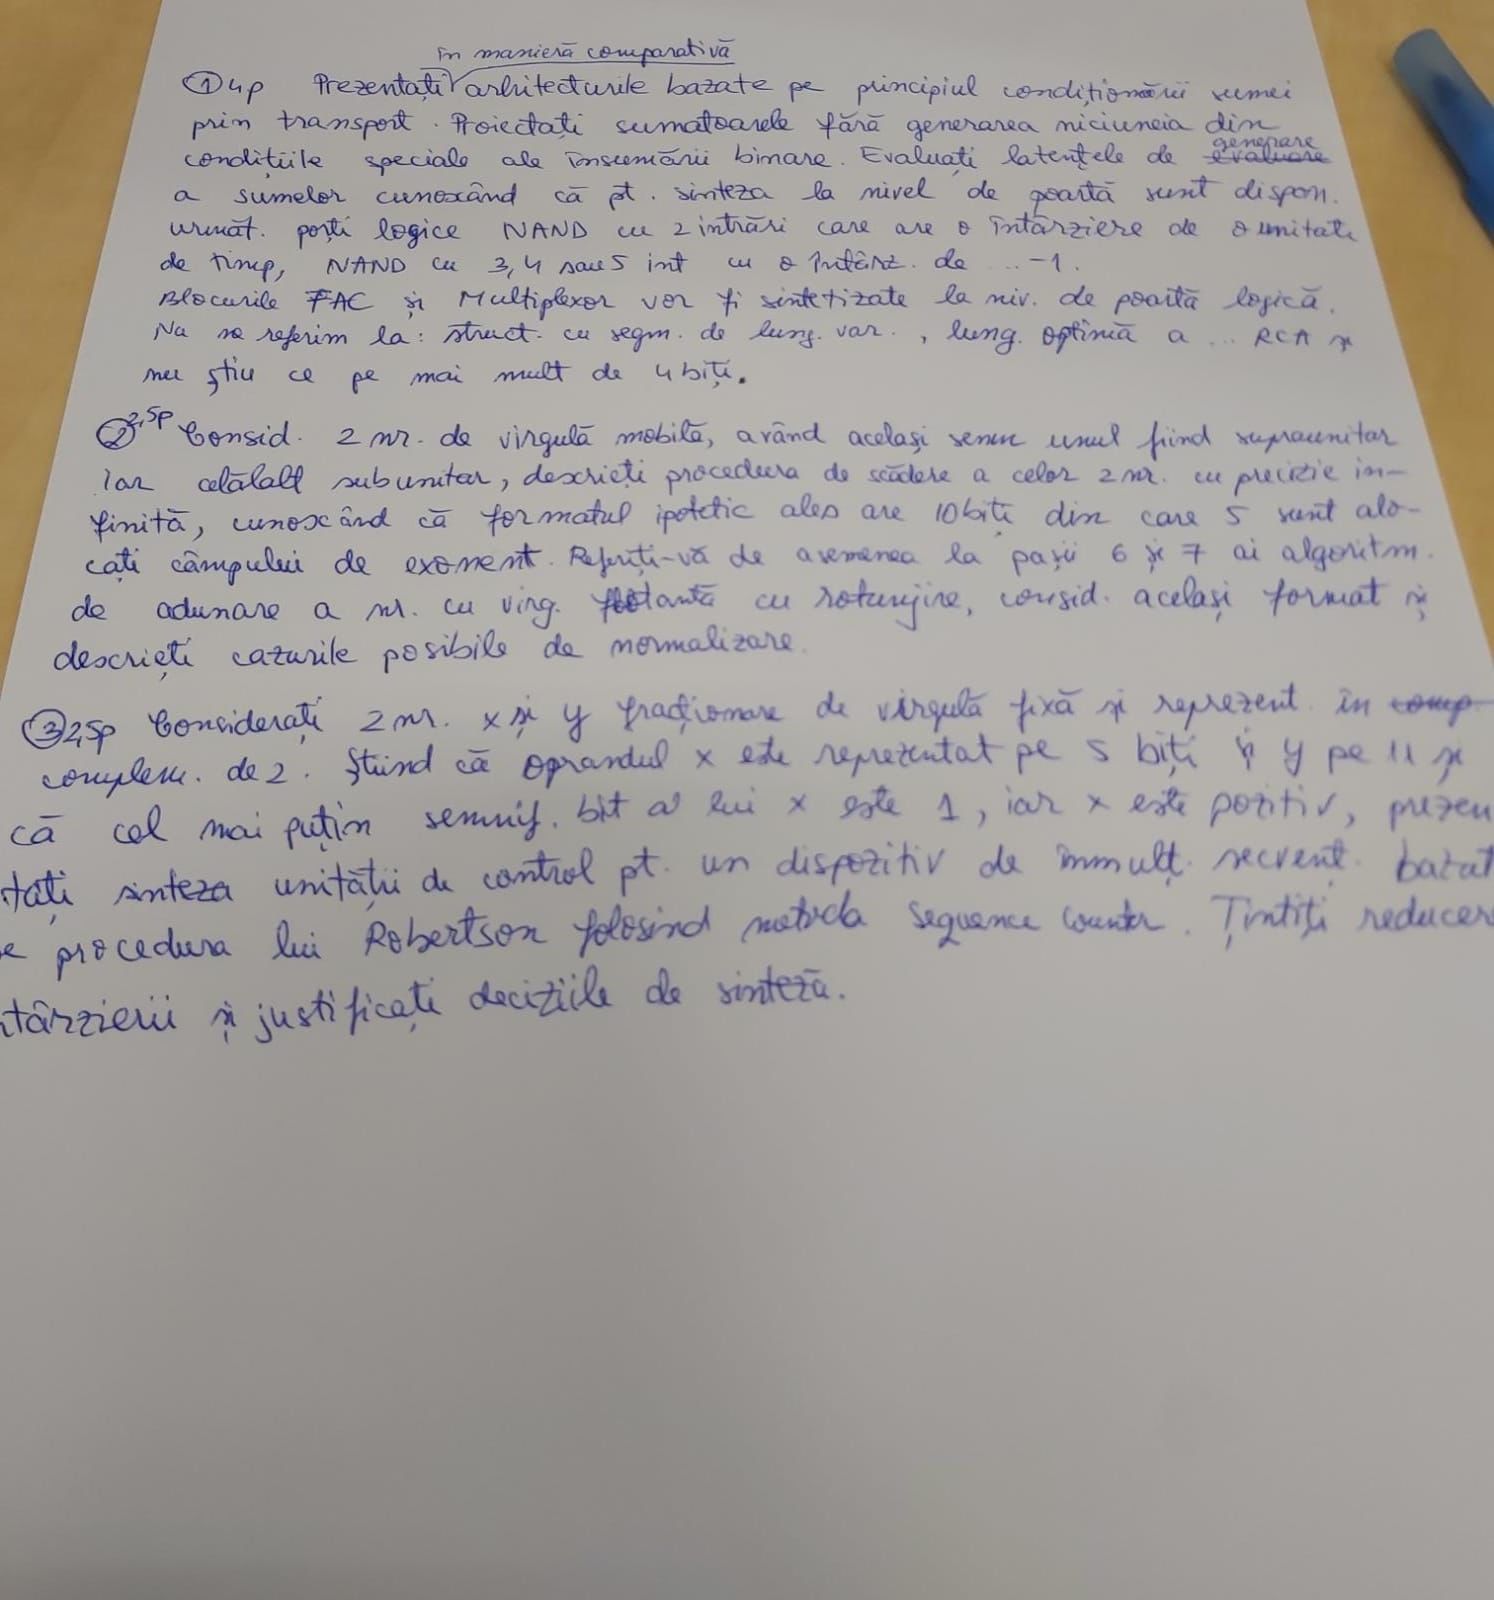 în manieră comparativă
① 4p Prezentați arhitecturile bazate pe principiul condiționării sumei
prin transport. Proiectați sumatoarele fără generarea niciuneia din
condițiile speciale ale însumării binare. Evaluați latențele de generare
evaluare
a sumelor cunoscând că pt. sinteza la nivel de poartă sunt dispon.
următ. porți logice NAND cu 2 intrări care are o întârziere de o unitate
de timp, NAND cu 3, 4 sau 5 int cu o întârz. de ... -1.
Blocurile FAC și Multiplexor vor fi sintetizate la niv. de poartă logică.
Nu se referim la: struct. cu segm. de lung. var., lung. optimă a ... RCA și
nu știu ce pe mai mult de 4 biți.
② 2,5p Consid. 2 nr. de virgulă mobilă, având același semn unul fiind supraunitar
iar celălalt subunitar, descrieți procedura de scădere a celor 2 nr. cu precizie in-
finită, cunoscând că formatul ipotetic ales are 10 biți din care 5 sunt alo-
cați câmpului de exonent. Referiți-vă de asemenea la pașii 6 și 7 ai algoritm.
de adunare a nr. cu virg. flotantă cu rotunjire, consid. același format și
descrieți cazurile posibile de normalizare.
③ 2,5p Considerați 2 nr. x și y fracționare de virgulă fixă și reprezent. în comp
complem. de 2. Știind că oprandul x este reprezentat pe 5 biți și y pe 11 și
că cel mai puțin semnif. bit al lui x este 1, iar x este pozitiv, prezen
tați sinteza unității de control pt. un dispozitiv de înmulț. secvenț. bazat
e procedura lui Robertson folosind metoda Sequence Counter. Țintiți reducer
ntârzierii și justificați deciziile de sinteză.